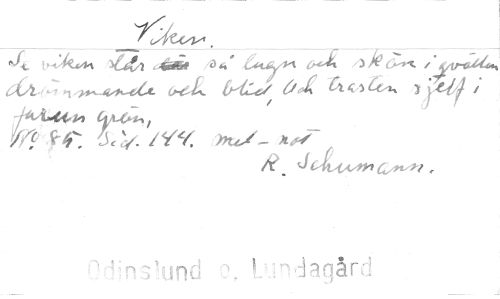 Viken.
Se viken står så lugn och skön i qvällen
drömmande och blid, Och trasten sjelf i
furen grön,
No. 85. Sid. 144. mel-not
R. Schumann.
Odinslund o. Lundagård